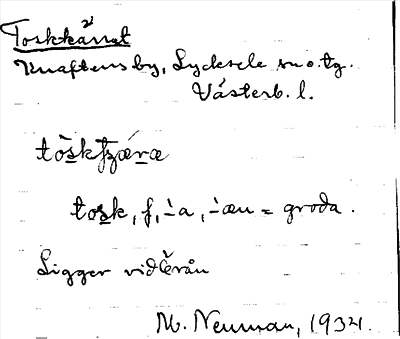 Toskkärret
Knaftens by, Lycksele sn o. tg.
Västerb. l.
tòskʃæræ
tosk, f, -a, -æn = groda.
Ligger vid Örån
M. Neuman, 1934.